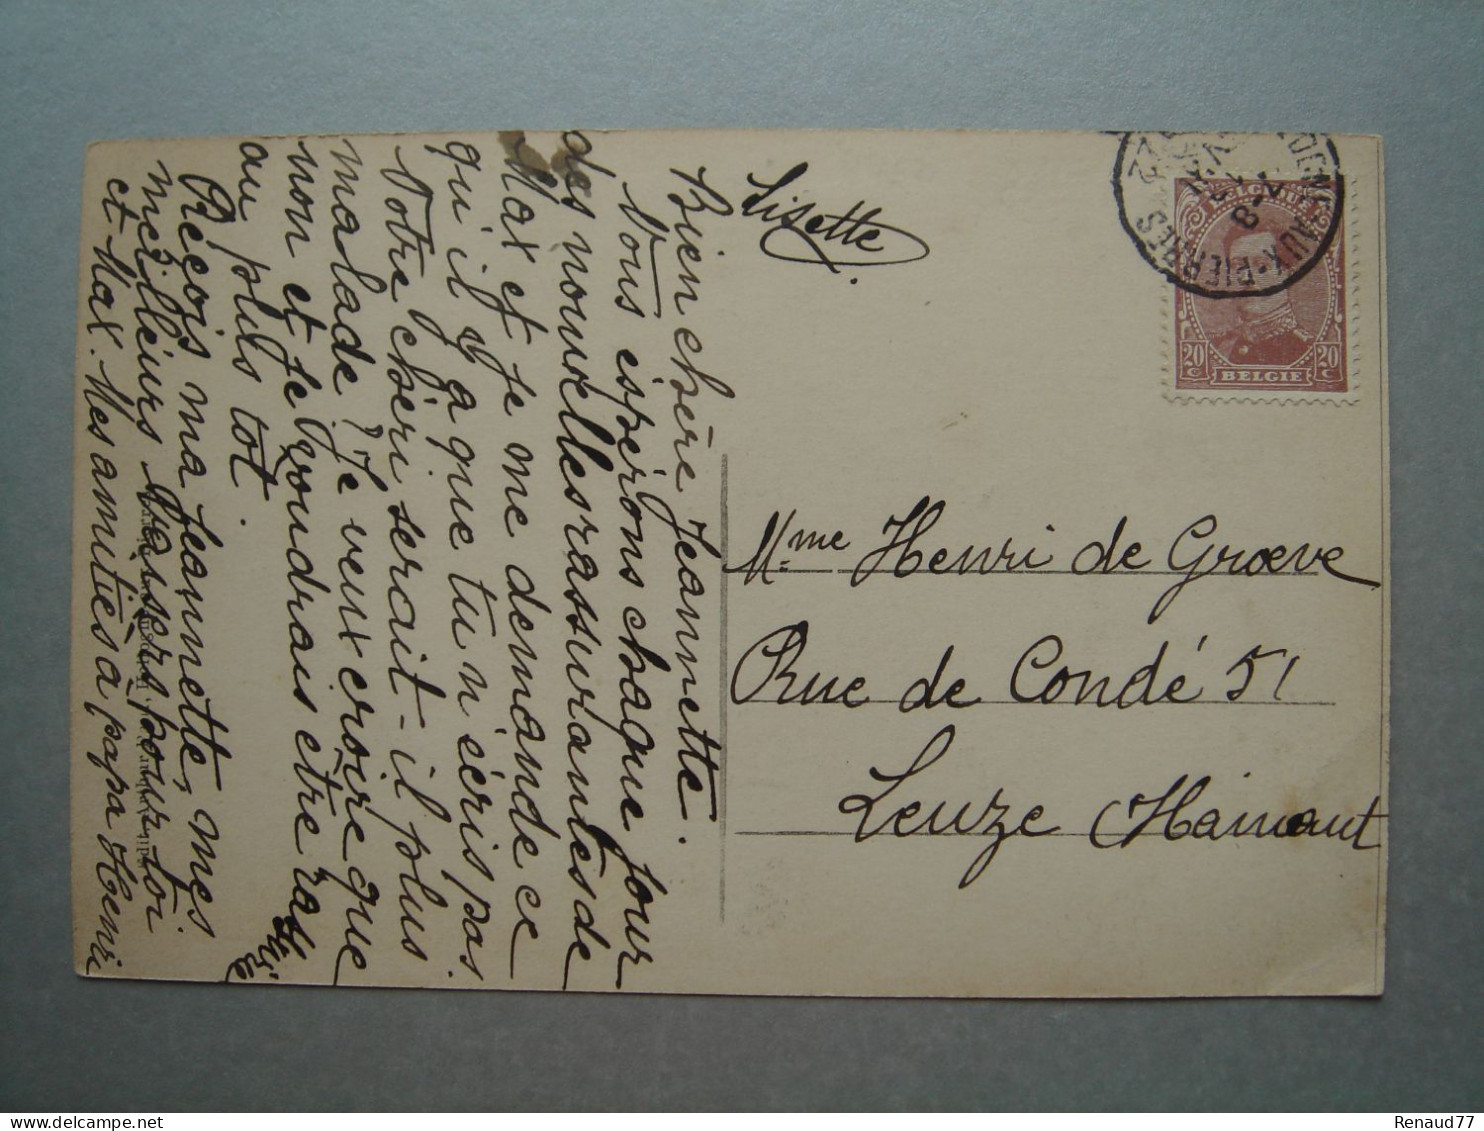 Bien chère Jeannette.
Nous espérons chaque jour
des nouvelles rassurantes de
Max et je me demande ce
qu'il y a que tu n'écris pas
Votre chéri serait-il plus
malade? Je veux croire que
non et je voudrais être ras
au plus tot.
Reçois ma Jeannette, mes
meilleurs baisers pour toi
et Max. Mes amitiés à papa Henri
Lisette
Mme Henri de Groeve
Rue de Condé 51
Leuze Hainaut
BELGIQUE
20 C 20 C
BELGIE
DENT-AUX-PIERRES
Renaud77